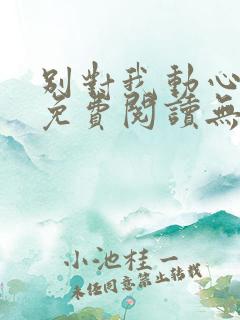 別對我動心
免費閱讀無
小池桂一
未經同意禁止轉載